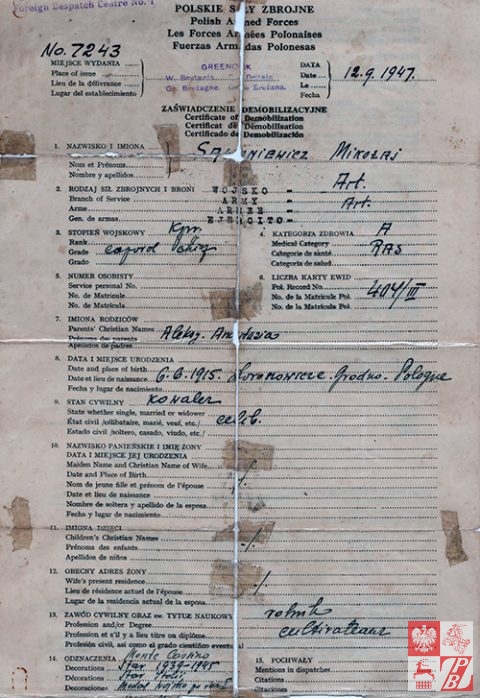 Foreign Despatch Centre No. 1
POLSKIE SIŁY ZBROJNE
Polish Armed Forces
Les Forces Armées Polonaises
Fuerzas Armadas Polonesas
No. 7243
MIEJSCE WYDANIA
Place of issue
Lieu de la délivrance
Lugar del establecimiento
GREENOCK
W. Brytania. Gt. Britain.
Gr. Bretagne. Gran Bretana.
DATA
Date 12.9.1947.
Le
Fecha
ZAŚWIADCZENIE DEMOBILIZACYJNE
Certificate of Demobilization
Certificat de Démobilisation
Certificado de Demobilización
1. NAZWISKO I IMIONA Mikołaj
Nom et Prénoms
Nombre y apellidos
2. RODZAJ SIŁ ZBROJNYCH I BRONI WOJSKO Art.
Branch of Service ARMY Art.
Arme ARMEE
Gen. de armas EJERCITO
3. STOPIEŃ WOJSKOWY Kpr.
Rank
Grade
Grado
4. KATEGORIA ZDROWIA A
Medical Category
Categorie de santé
Categoria de salud
5. NUMER OSOBISTY
Service personal No.
No. de Matricule
No. de Matricula
6. LICZBA KARTY EWID
Pol. Record No. 404/III
No. de la Matricule Pol.
No. de la Matricula Pol.
7. IMIONA RODZICÓW
Parents' Christian Names
Prénoms des parents
Apellidos de padres
8. DATA I MIEJSCE URODZENIA
Date and place of birth
Date et lieu de naissance 6.6.1915. Grodno. Pologne
Fecha y lugar de nacimiento
9. STAN CYWILNY kawaler
State whether single, married or widower
État civil /célibataire, marié, veuf, etc./ célib.
Estado civil /soltero, casado, viudo, etc./
10. NAZWISKO PANIEŃSKIE I IMIĘ ŻONY
DATA I MIEJSCE JEJ URODZENIA
Maiden Name and Christian Name of Wife
Date and Place of Birth
Nom de jeune fille et prénom de l'épouse
Date et lieu de naissance
Nombre de soltera y apelido de la esposa
Fecha y lugar de nacimiento
11. IMIONA DZIECI
Children's Christian Names
Prénoms des enfants
Apellidos de niños
12. OBECNY ADRES ŻONY
Wife's present residence
Lieu de résidence actuel de l'épouse
Lugar de la residencia actual de la esposa
13. ZAWÓD CYWILNY ORAZ ew. TYTUŁ NAUKOWY rolnik
Profession and/or Degree cultivateur
Profession et s'il y a lieu titre ou diplôme
Profesión civil, asi como el grado cientifico eventual
14. ODZNACZENIA Monte Cassino
Decorations Star 1939-1945
Décorations Star Italii
Decoraciones Medal
15. POCHWAŁY
Mentions in dispatches
Citations
Citaciones